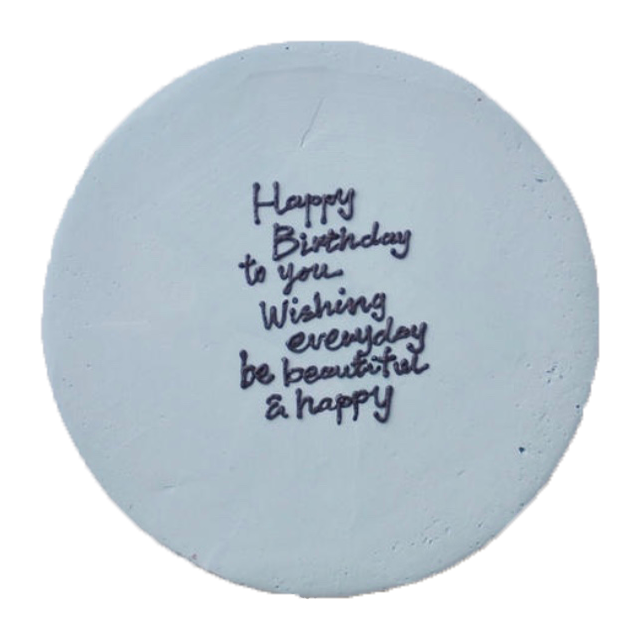 Happy
Birthday
to you
Wishing
everyday
be beautiful
& happy